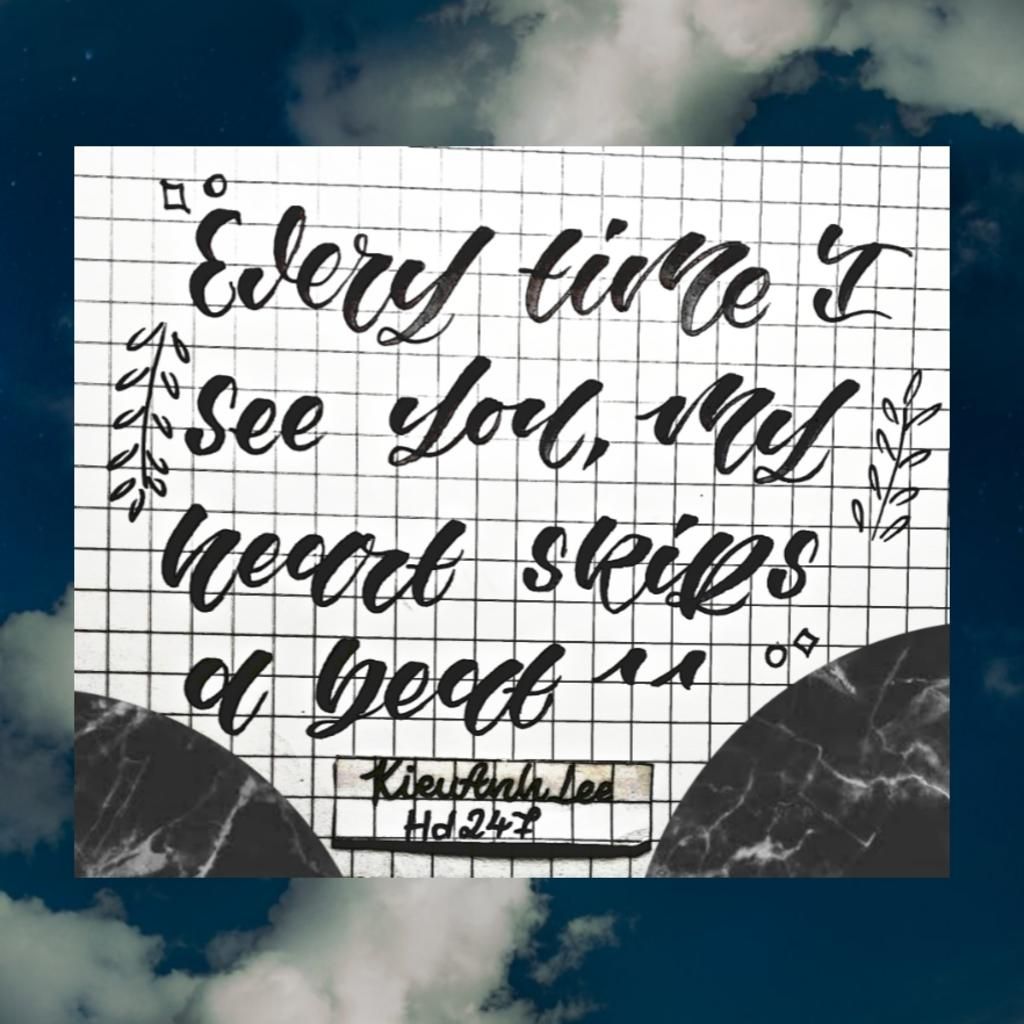 Every time I
see you, my
heart skips
a beat ^^
KieuAnh_Lee
Hd247